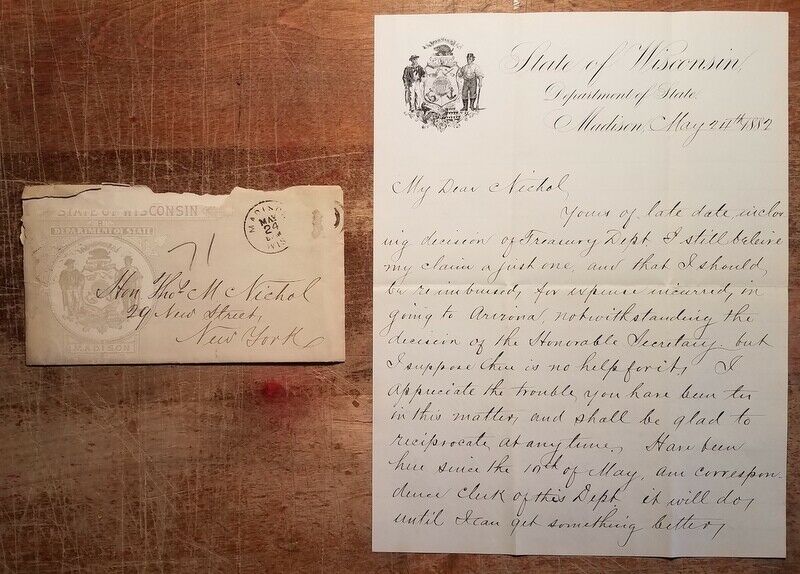 STATE OF WISCONSIN
DEPARTMENT OF STATE
MADISON
MADISON
MAY
24
WIS
71
Hon. Thos. M Nichol
29 New Street,
New York
State of Wisconsin,
Department of State.
Madison, May 24th 1882
My Dear Nichol,
Yours of late date, inclos
ing decision of Treasury Dept. I still beleive
my claim a just one, and that I should,
be reimbursed, for expense incurred, in
going to Arizona, notwithstanding the
decision of the Honorable Secretary. but
I suppose there is no help for it, I
appreciate the trouble, you have been to
in this matter, and shall be glad to
reciprocate, at any time, Have been
here since the 10th of May, am correspon-
dence Clerk of this Dept it will do,
until I can get something better,